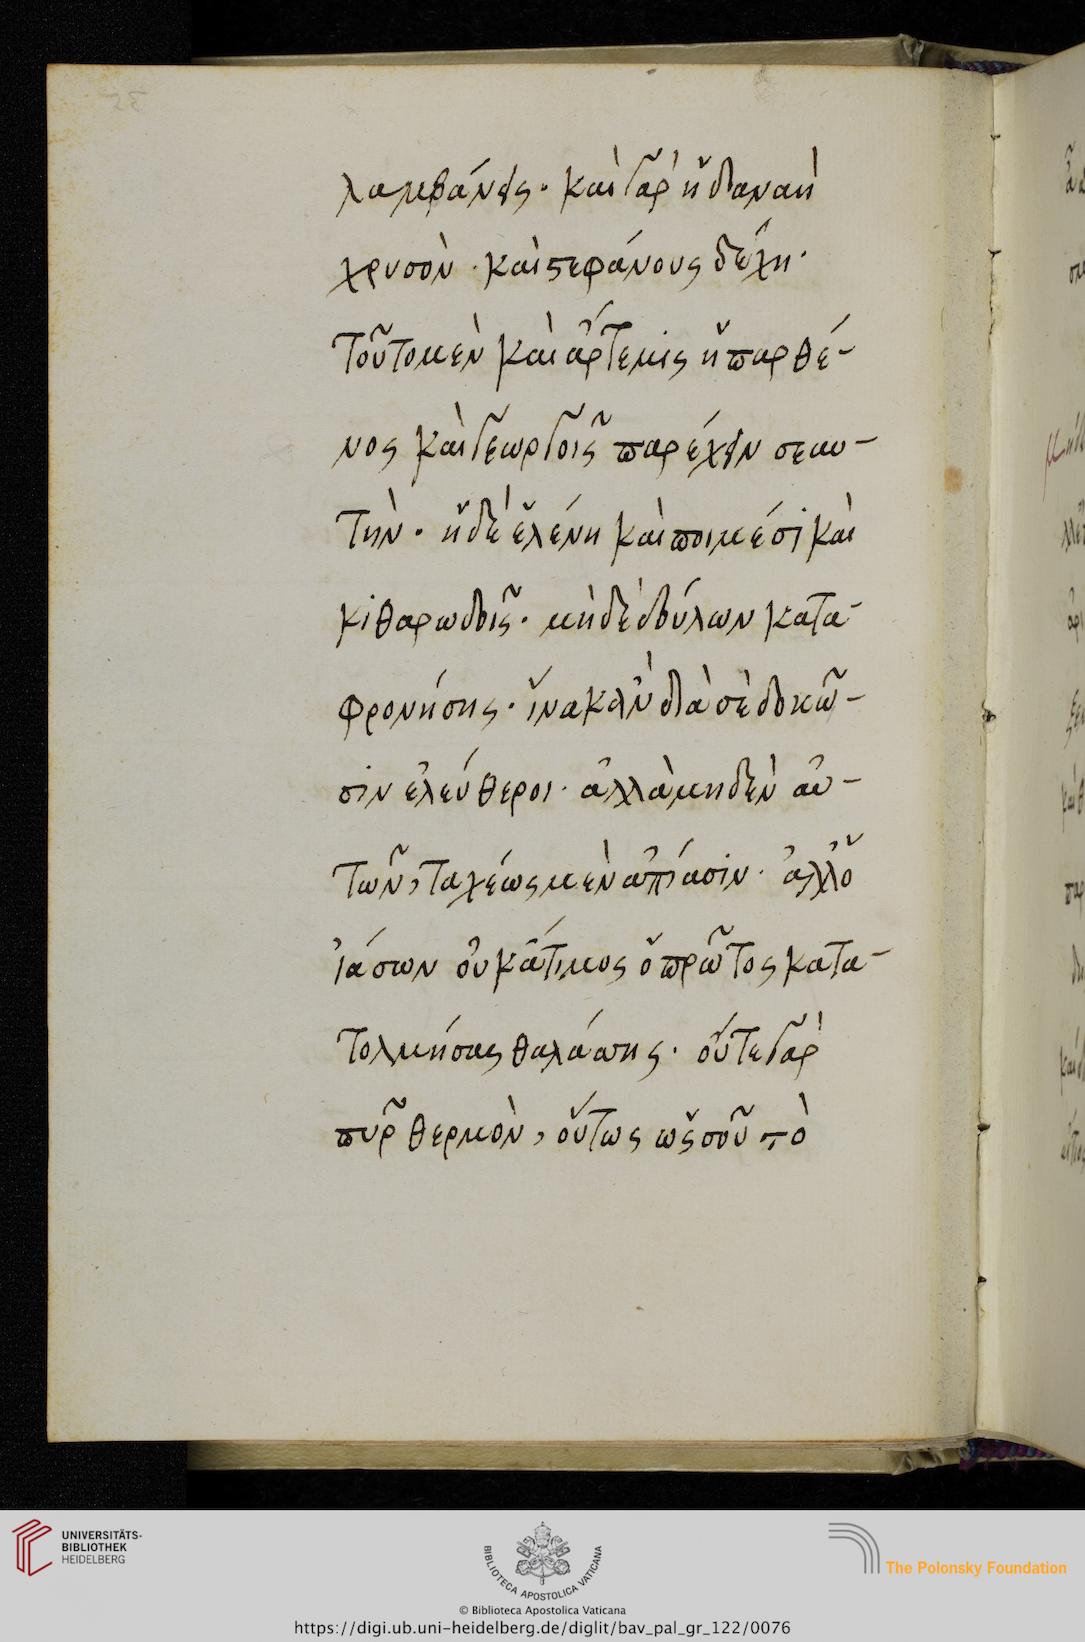 λαμβάνεις· καὶ γὰρ ἡ δανάη
χρυσὸν· καὶ στεφάνους δέχη·
τοῦτο μὲν καὶ ἄρτεμις ἡ παρθέ-
νος καὶ γεωργοῖς παρέχειν σεαυ-
τὴν· ἡ δὲ ἑλένη καὶ ποιμέσι καὶ
κιθαρωδοῖς· μὴ δὲ δούλων κατα-
φρονήσης· ἵνα κἂν διὰ σὲ δοκῶ-
σιν ἐλεύθεροι· ἀλλὰ μηδὲν αὐ-
τῶν, ταχέως μὲν ἀπίασιν· ἀλλ' ὁ
ἰάσων οὐκ ἄτιμος ὁ πρῶτος κατα-
τολμήσας θαλάττης· οὔτε γὰρ
πῦρ θερμὸν, οὕτως ὡς σοῦ τὸ
UNIVERSITÄTS-
BIBLIOTHEK
HEIDELBERG
BIBLIOTECA APOSTOLICA VATICANA
The Polonsky Foundation
© Biblioteca Apostolica Vaticana
https://digi.ub.uni-heidelberg.de/diglit/bav_pal_gr_122/0076